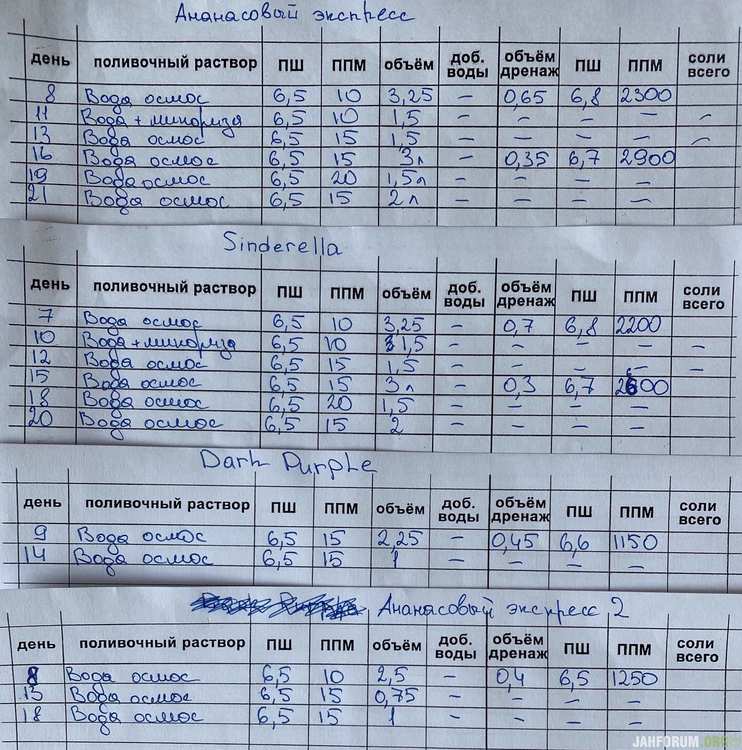 Ананасовый экспресс
день поливочный раствор ПШ ППМ объём доб. воды объём дренаж ПШ ППМ соли всего
8 Вода осмос 6,5 10 3,25 – 0,65 6,8 2300
11 Вода + микориза 6,5 10 1,5 – – – – –
13 Вода осмос 6,5 15 1,5 – – – – –
16 Вода осмос 6,5 15 3л – 0,35 6,7 2900
19 Вода осмос 6,5 20 1,5л – – – –
21 Вода осмос 6,5 15 2л – – – –
Sinderella
день поливочный раствор ПШ ППМ объём доб. воды объём дренаж ПШ ППМ соли всего
7 Вода осмос 6,5 10 3,25 – 0,7 6,8 2200
10 Вода + микориза 6,5 10 1,5 – – – – –
12 Вода осмос 6,5 15 1,5 – – – – –
15 Вода осмос 6,5 15 3л – 0,3 6,7 2600
18 Вода осмос 6,5 20 1,5 – – – –
20 Вода осмос 6,5 15 2 – – – –
Dark Purple
день поливочный раствор ПШ ППМ объём доб. воды объём дренаж ПШ ППМ соли всего
9 Вода осмос 6,5 15 2,25 – 0,45 6,6 1150
14 Вода осмос 6,5 15 1 – – – –
Ананасовый экспресс 2
день поливочный раствор ПШ ППМ объём доб. воды объём дренаж ПШ ППМ соли всего
8 Вода осмос 6,5 10 2,5 – 0,4 6,5 1250
13 Вода осмос 6,5 15 0,75 – – – –
18 Вода осмос 6,5 15 1 – – – –
JAHFORUM.ORG